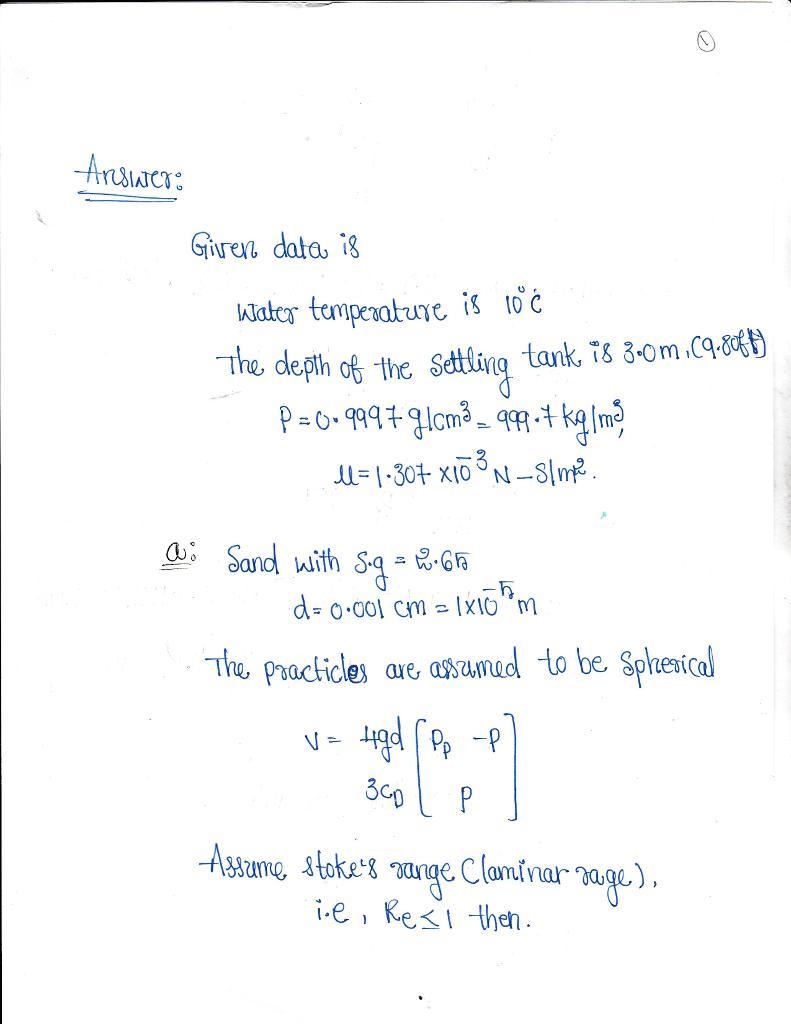 1
Answer:
Given data is
Water temperature is 10°C
The depth of the settling tank is 3.0m, (9.80ft)
P = 0.9997 g/cm³ = 999.7 kg/m³,
μ = 1.307 × 10⁻³ N-S/m².
a: Sand with s.g = 2.65
d = 0.001 cm = 1×10⁻⁵ m
The practicles are assumed to be spherical
V = 4gd [ Pp - P ]
3CD [ P ]
Assume stoke's range (laminar rage),
i.e, Re ≤ 1 then.